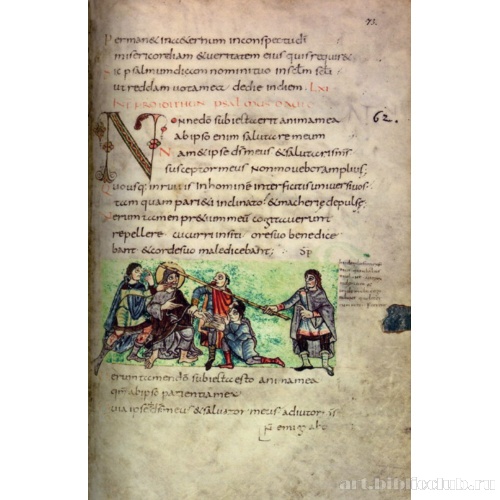 73.
Perman& in &ernum in conspectu dī
misericordiam & ueritatem eius quis requir&
Sic psalmum dicam nomini tuo in sclm scli
ut reddam uota mea de die in diem. LXI
PSALMUS DAUID
62.
Nonne dō subiecta erit anima mea
ab ipso enim salutare meum
Nam & ipse ds meus & salutaris ms
susceptor meus non mouebor amplius;
Quousq; inruitis in hominē interficitis uniuersi uos
tamquam pari&i inclinato & macherie depulse;
Uerumtamen pr&ium meū cogitauerunt
repellere cucurri in siti ore suo benedice
bant & corde suo maledicebant;
erumtamen dō subiecta esto anima mea
qm̄ ab ipso patientia mea
quia ipse ds meus & saluator meus adiutor
emigrabo
art.biblioclub.ru